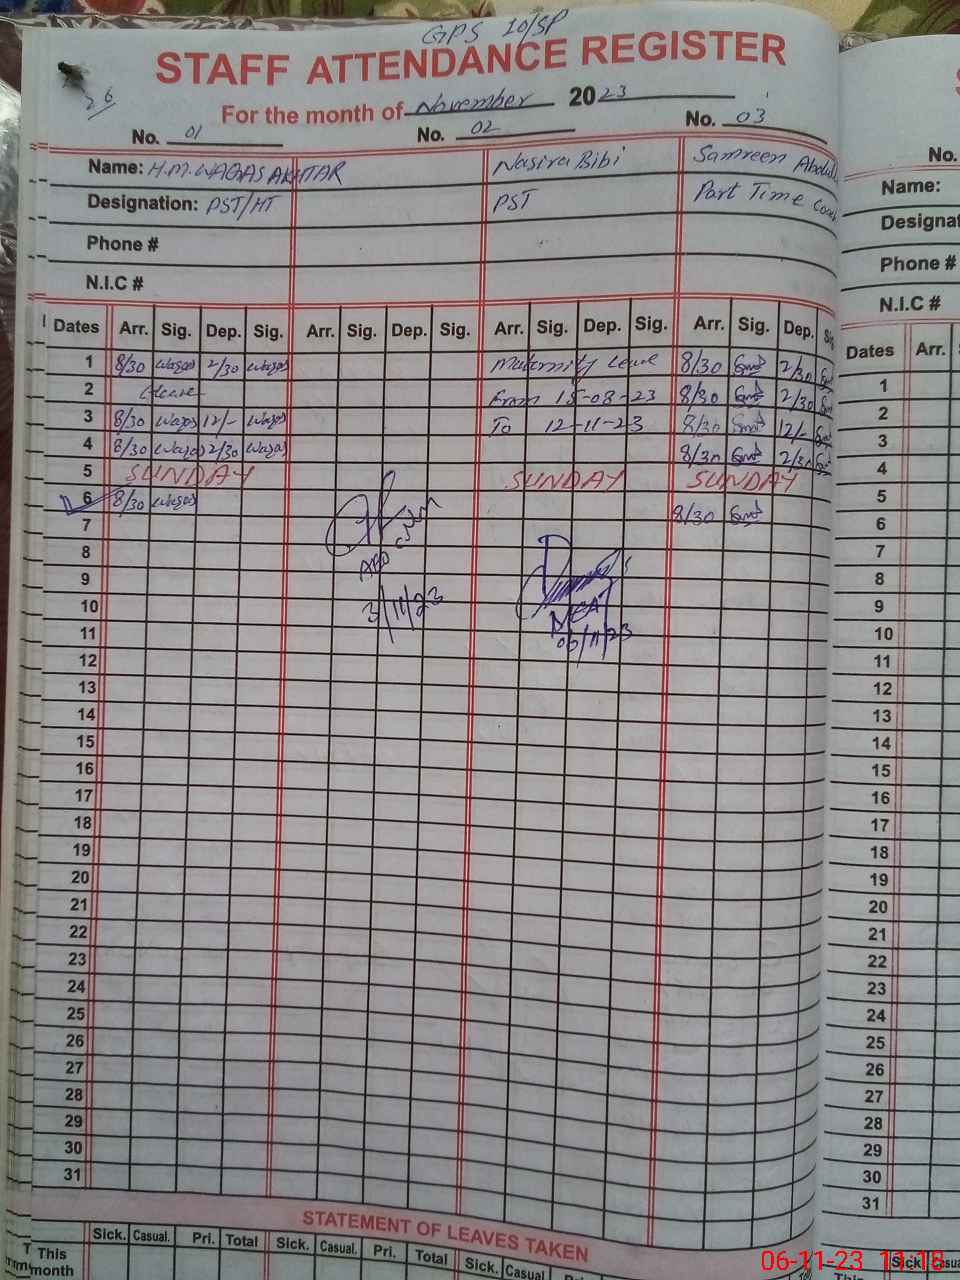 GPS 10/SP
STAFF ATTENDANCE REGISTER
26
For the month of November 2023
No. 01 No. 02 No. 03
Name: H.M.WAQAS AKHTAR Nasira Bibi Samreen
Designation: PST/HT PST Part Time
Phone #
N.I.C #
Dates Arr. Sig. Dep. Sig. Arr. Sig. Dep. Sig. Arr. Sig. Dep. Sig. Arr. Sig. Dep.
1 8/30 Waqas 2/30 Waqas Maternity Leave 8/30 2/30
2 Leave From 15-08-23 8/30 2/30
3 8/30 Waqas 12/- Waqas To 12-11-23 8/30 12/-
4 8/30 Waqas 2/30 Waqas 8/30 2/30
5 SUNDAY SUNDAY SUNDAY
6 8/30 Waqas 8/30
7
8
AEO
9
3/11/23
10
MEA
11
06/11/23
12
13
14
15
16
17
18
19
20
21
22
23
24
25
26
27
28
29
30
31
STATEMENT OF LEAVES TAKEN
Sick. Casual. Pri. Total Sick. Casual. Pri. Total Sick. Casual
This month
No.
Name:
Phone #
N.I.C #
Dates Arr.
1
2
3
4
5
6
7
8
9
10
11
12
13
14
15
16
17
18
19
20
21
22
23
24
25
26
27
28
29
30
31
Sick.
This
06-11-23 11:18